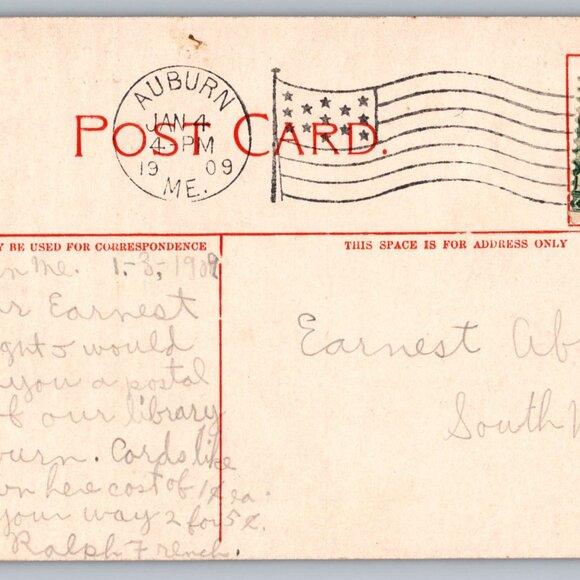 AUBURN
JAN 4
4-PM
19 09
ME.
POST CARD.
Y BE USED FOR CORRESPONDENCE
THIS SPACE IS FOR ADDRESS ONLY
n Me. 1-3-, 1909
r Earnest
ght would
you a postal
of our library
burn. Cards like
n here cost of 1¢ ea.
your way 2 for 5¢.
Ralph French.
Earnest Ab
South